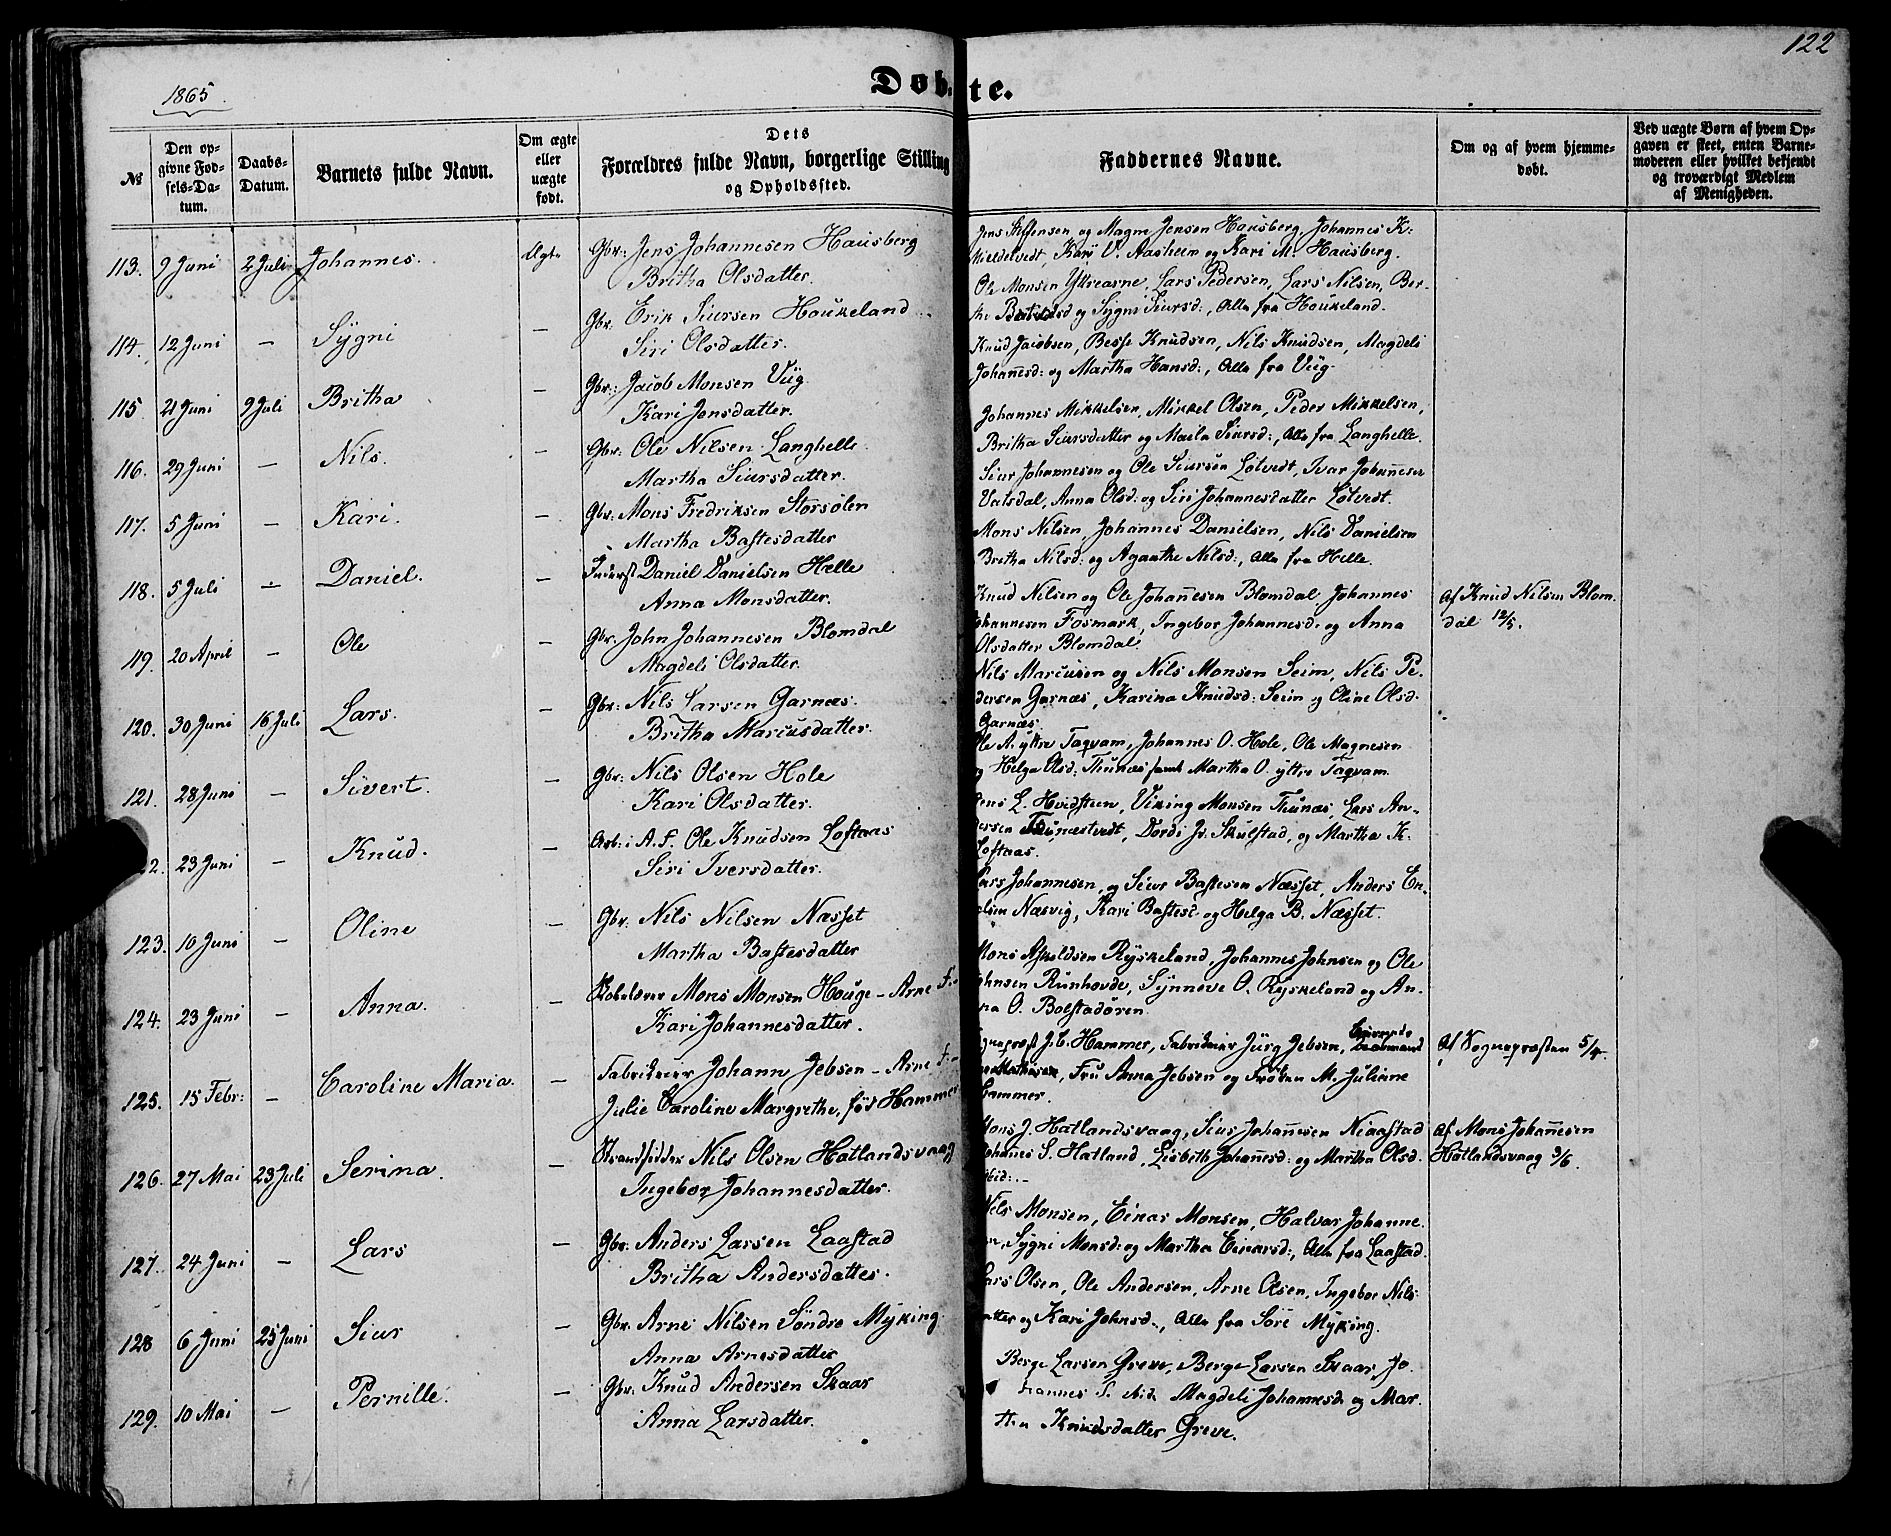 122
1865
Døbte.
№
Den opgivne Fødsels-Datum.
Daabs-Datum.
Barnets fulde Navn.
Om ægte eller uægte født.
Dets Forældres fulde Navn, borgerlige Stilling og Opholdssted.
Faddernes Navne.
Om og af hvem hjemmedøbt.
Ved uægte Børn af hvem Opgaven er skeet, enten Barnemoderen eller hvilket bekjendt og troværdigt Medlem af Menigheden.
113. 9 Juni 2 Juli Johannes. Ægte Gbr: Jens Johannesen Hausberg
Britha Olsdatter.
Jens Steffensen og Magne Jensen Hausberg, Johannes K.
Kieldetvedt, Kari O. Aasheim og Kari M. Hausberg.
114. 12 Juni — Sÿgni — Gbr. Erik Siursen Houkeland
Siri Olsdatter.
Ole Monsen Yttrearne, Lars Pedersen, Lars Nilsen, Ber-
the og Sygni Siursd:, Alle fra Houkeland.
115. 21 Juni 9 Juli Britha — Gbr: Jacob Monsen Viig
Kari Jensdatter.
Knud Jacobsen, Besse Knudsen, Nils Knudsen, Magdeli
Johannesd: og Martha Hansd:, Alle fra Viig.
116. 29 Juni — Nils. — Gbr. Ole Nilsen Langhelle.
Martha Siursdatter.
Johannes Mikkelsen, Mikkel Olsen, Peder Mikkelsen,
Britha Siursdatter og Maila Siursd:, Alle fra Langhelle.
117. 5 Juni — Kari. — Gbr: Mons Fredriksen Storsølen
Martha Bastesdatter
Siur Johannesen og Ole Siursen Lötvedt, Ivar Johannesen
Vatsdal, Anna Olsd: og Siri Johannesdatter Lötvedt.
118. 5 Juli — Daniel. — Inderst Daniel Danielsen Helle
Anna Monsdatter.
Mons Nilsen, Johannes Danielsen, Nils Danielsen
Britha Nilsd: og Aganthe Nilsd:, Alle fra Helle.
119. 20 April — Ole — Gbr: John Johannesen Blomdal
Magdeli Olsdatter.
Knud Nilsen og Ole Johannesen Blomdal Johannes
Johannesen Fosmark, Ingebor Johannesd. og Anna
Olsdatter Blomdal.
Af Knud Nilsen Blom-
dal 12/5.
120. 30 Juni 16 Juli Lars. — Gbr: Nils Larsen Garnæs.
Britha Marcusdatter.
Nils Marcusen og Nils Monsen Seim, Nils Pe-
dersen Garnæs, Karina Knudsd: Seim og Oline Olsd.
Garnæs.
121. 28 Juni — Sivert. — Gbr: Nils Olsen Hole
Kari Olsdatter.
Ole A. yttre Taqvam, Johannes O. Hole, Ole Magnesen
og Helga Olsd: Tunæs samt Martha O. yttre Taqvam.
23 Juni — Knud. — Arb: i A. F. Ole Knudsen Loftaas
Siri Iversdatter.
Jens L. Hvidsteen, Viking Monsen Tunæs, Lars An-
dersen Tunæstvedt, Dordi Js. Skulstad, og Martha K.
Loftaas.
123. 10 Juni — Oline — Gbr. Nils Nilsen Næsset
Martha Bastesdatter
Lars Johannesen, og Siur Bastesen Næsset, Anders En-
Næsvig, Kari Bastesd og Helga B. Næsset.
124. 23 Juni — Anna. — Mons Monsen Houge – Arne F.
Kari Johannesdatter.
Mons Askoldsen Ryskeland, Johannes Johnsen og Ole
Johnsen Runhovde, Synneve O. Ryskeland og An-
na O. Bolstadøren.
125. 15 Febr: — Caroline Maria. — Fabrikeier Johann Jebsen – Arne F.
Julie Caroline Margrethe, född Hammer
Sogneprest J. C. Hammer, Fabrikeier Jürg Jebsen,
Fru Anna Jebsen og Frøken M. Juliane
Hammer.
Af Sognepræsten 5/4.
126. 27 Mai 23 Juli Serina. — Strandsidder Nils Olsen Hatlandsvaag
Ingebor Johannesdatter.
Mons J. Hatlandsvaag, Siur Johannesen Niaastad
Johannes S. Hatland, Lisbeth Johannesd: og Martha Olsd.
ibid:.
Af Mons Johannesen
Hatlandsvaag 3/6.
127. 24 Juni — Lars — Gbr: Anders Larsen Laastad
Britha Andersdatter.
Nels Monsen, Einar Monsen, Halvor Johanne-
sen, Sygni Monsd: og Martha Einarsd:, Alle fra Laastad.
128 6 Juni 25 Juni Siur — Gbr. Arne Nilsen Søndre Mÿking
Anna Arnesdatter
Lars Olsen, Ole Andersen, Arne Olsen, Ingebor Nils-
datter og Kari Johnsd:, Alle fra Søre Mÿking.
129. 10 Mai — Pernille. — Gbr: Knud Andersen Skaar
Anna Larsdatter.
Berge Larsen Greve, Berge Larsen Skaar, Jo-
hannes S. ibid. Magdeli Johannesd. og Mar-
tha Knudsdatter Greve.